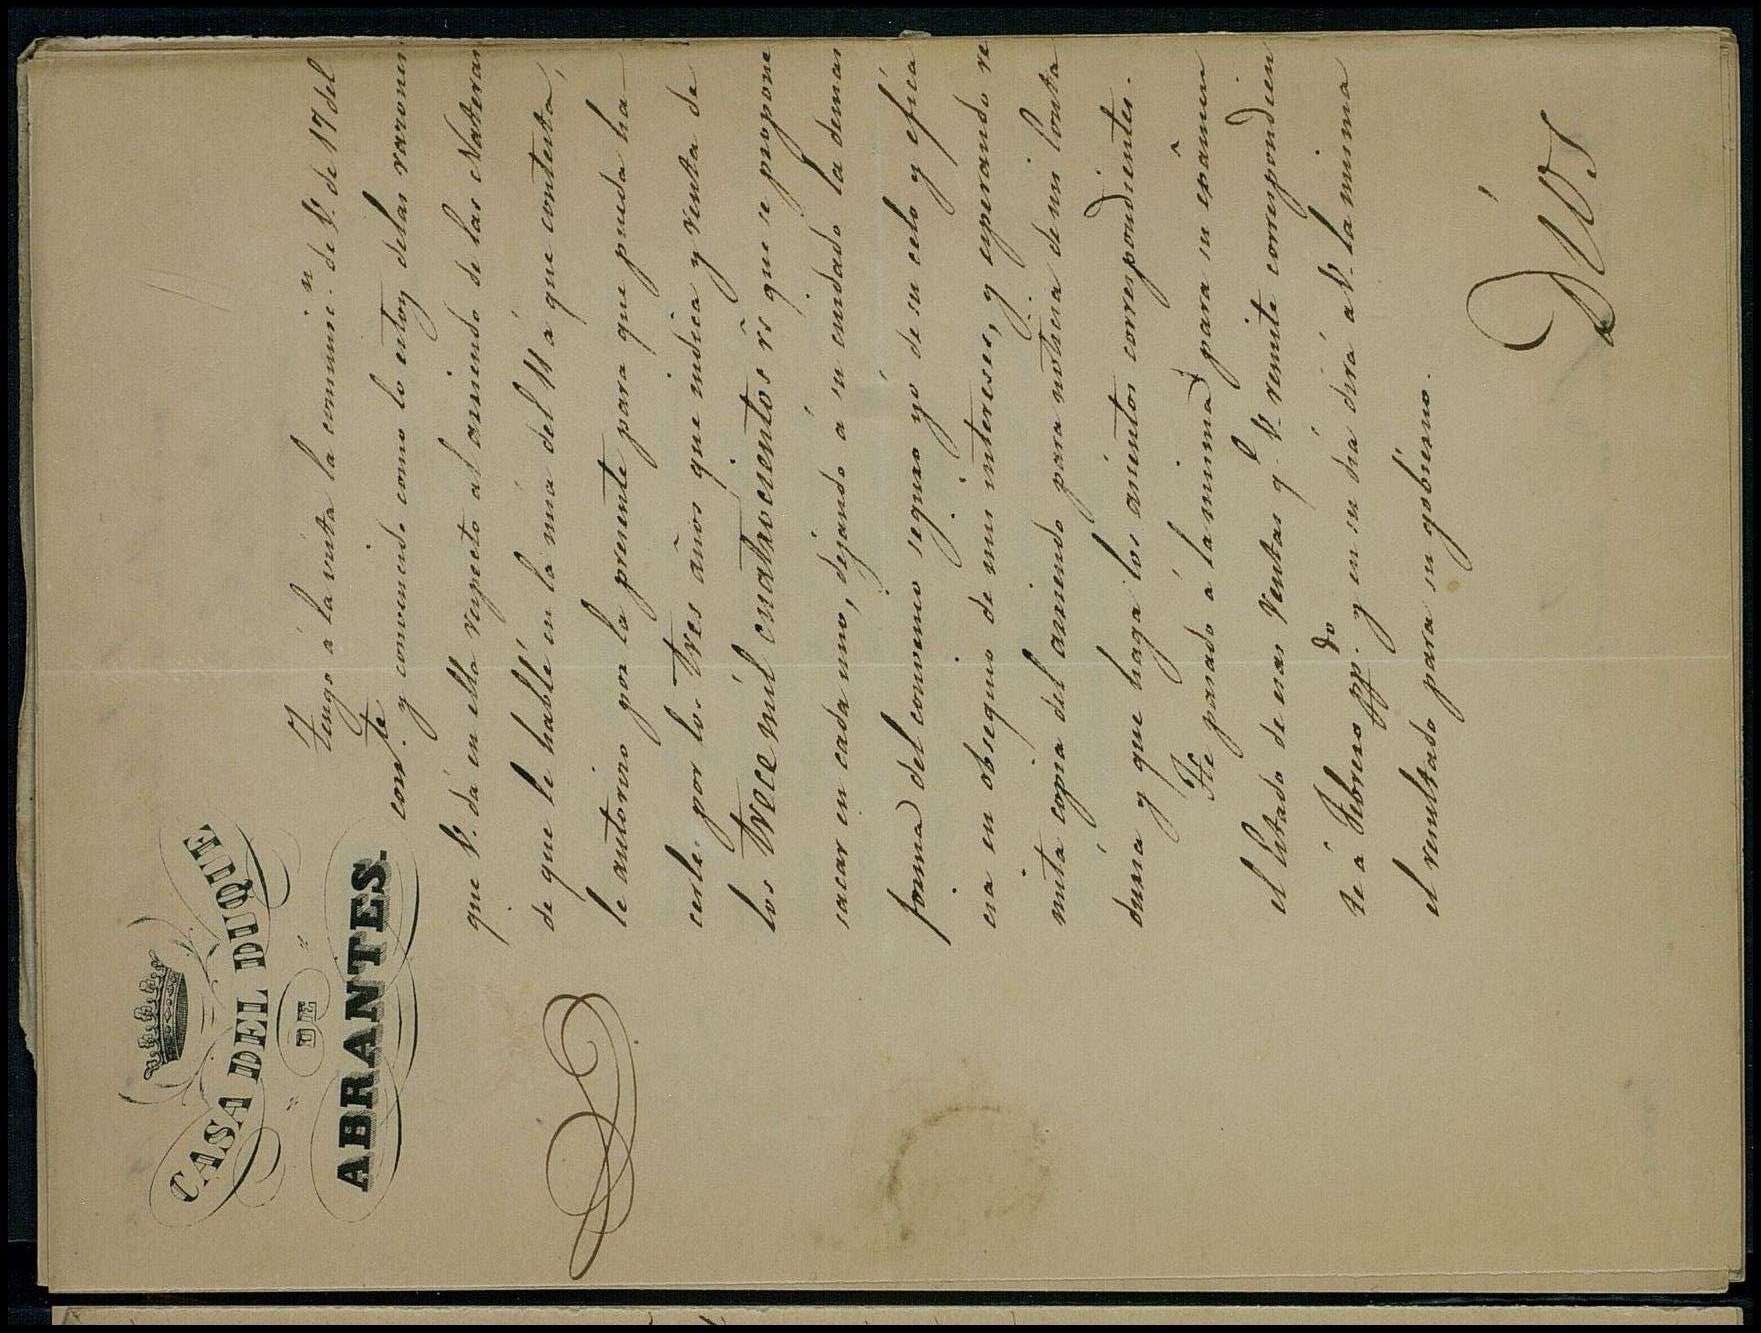 CASA DEL DUQUE
DE
ABRANTES.
Tengo a la vista la comunic.n de V. de 17 del
corr.te y convencido como lo estoy delas razones
que V. dá en ella respecto al arriendo de las Nateras
de que le hablé en la mia del 11 a que contesta,
le autorizo por la presente para que pueda ha-
cerle por los tres años que indica y renta de
los trece mil cuatrocientos rs que se propone
sacar en cada uno, dejando á su cuidado la demas
forma del convenio seguro yo de su celo y efica
cia en obsequio de mis intereses, y esperando re
mita copia del arriendo para noticia de mi Conta
duria y que haga los asientos correspondientes.
He pasado a la misma para su exámen
el Estado de esas Rentas q.e V. remite correspondien
te á Febrero pp.do y en su dia dirá a V. la misma
el resultado para su gobierno.
Dios